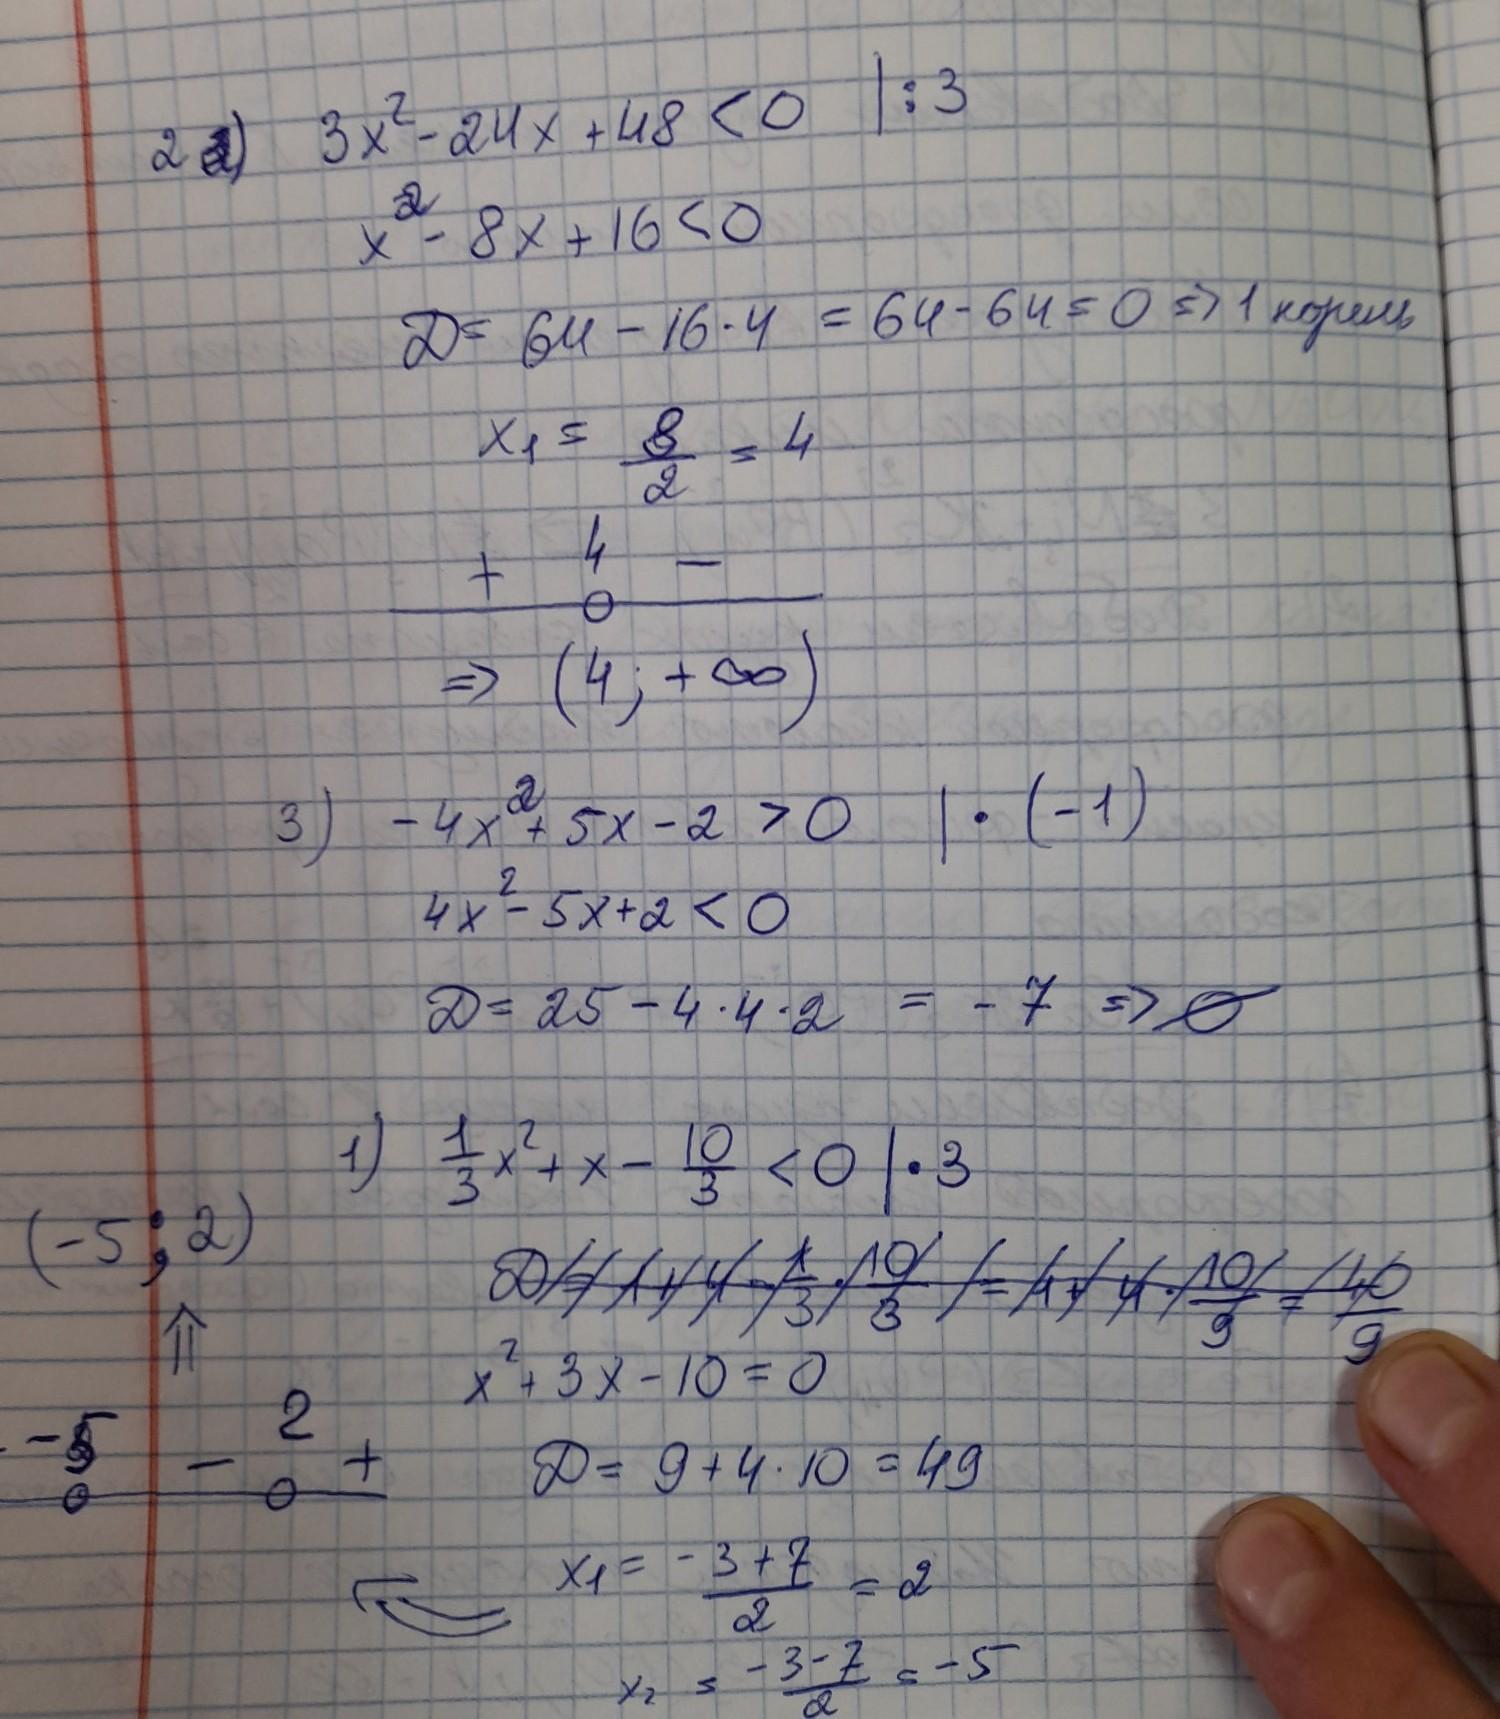 2 2) 3x² - 24x + 48 < 0 | : 3
x² - 8x + 16 < 0
D = 64 - 16 · 4 = 64 - 64 = 0 => 1 корень
x₁ = 8/2 = 4
+ 4 -
=> (4; +∞)
3) -4x² + 5x - 2 > 0 | · (-1)
4x² - 5x + 2 < 0
D = 25 - 4 · 4 · 2 = -7 => ∅
1) 1/3 x² + x - 10/3 < 0 | · 3
(-5; 2)
D = 1 + 4 · 1/3 · 10/3 = 1 + 4 · 10/9 = 40/9
x² + 3x - 10 = 0
-5 - 2 +
D = 9 + 4 · 10 = 49
x₁ = (-3 + 7)/2 = 2
x₂ = (-3 - 7)/2 = -5